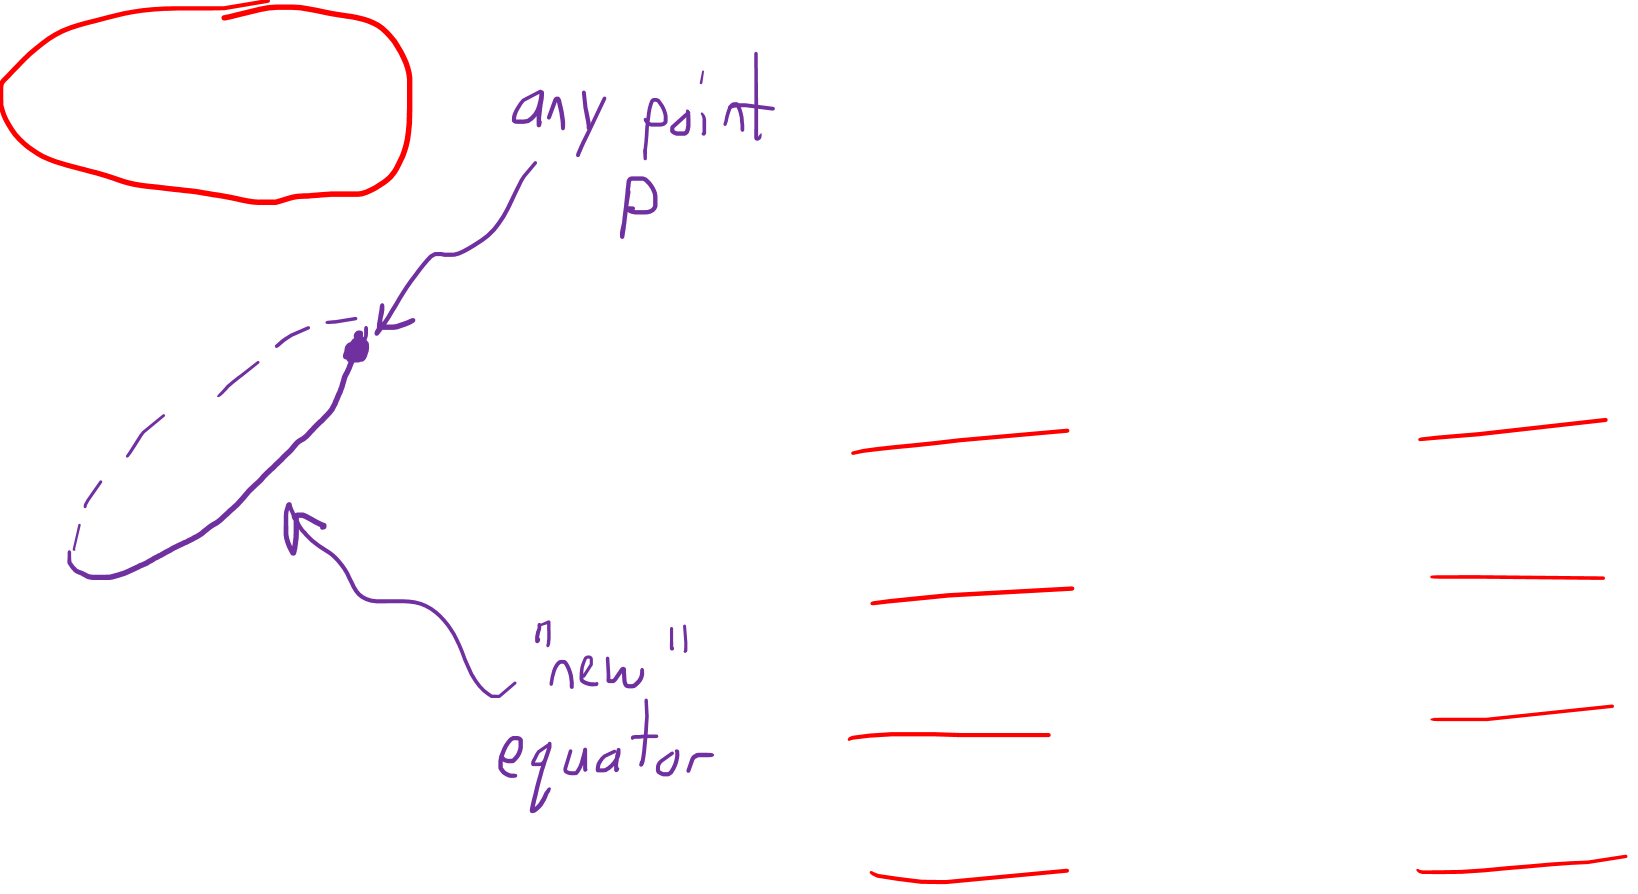 any point
P
"new"
equator